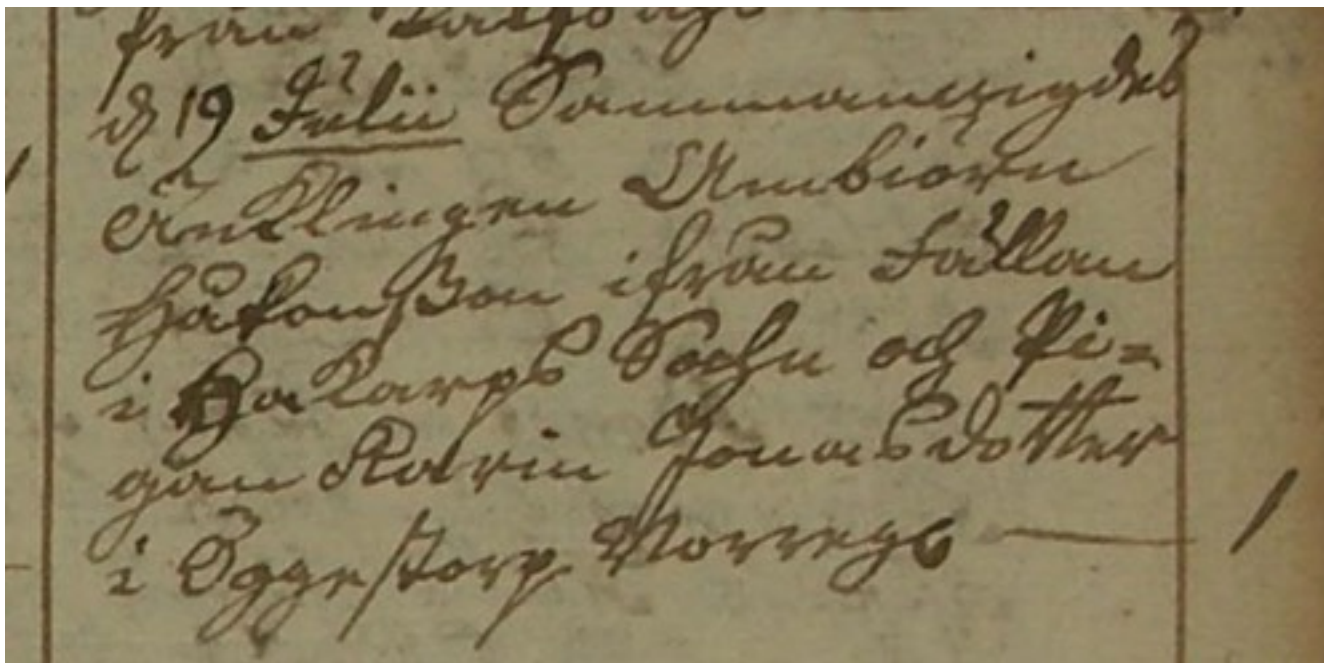 från
d 19 Julii Sammanvigdes
Änklingen Ambiörn
Håkansson ifrån Fällan
i Hakarps Sochn och Pi=
gan Karin Jonasdotter
i Öggestorp Norregd